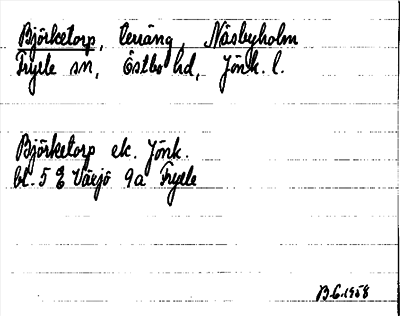 Björketorp, terräng, Näsbyholm
Fryele sn, Östbo hd, Jönk. l.
Björketorp ek. Jönk.
bl. 5 E Växjö 9a Fryele
B.G. 1958